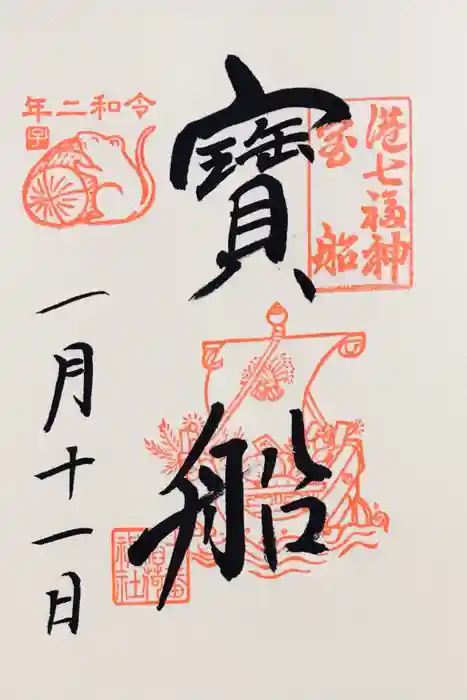 港七福神
宝船
寳船
令和二年
子
一月十一日